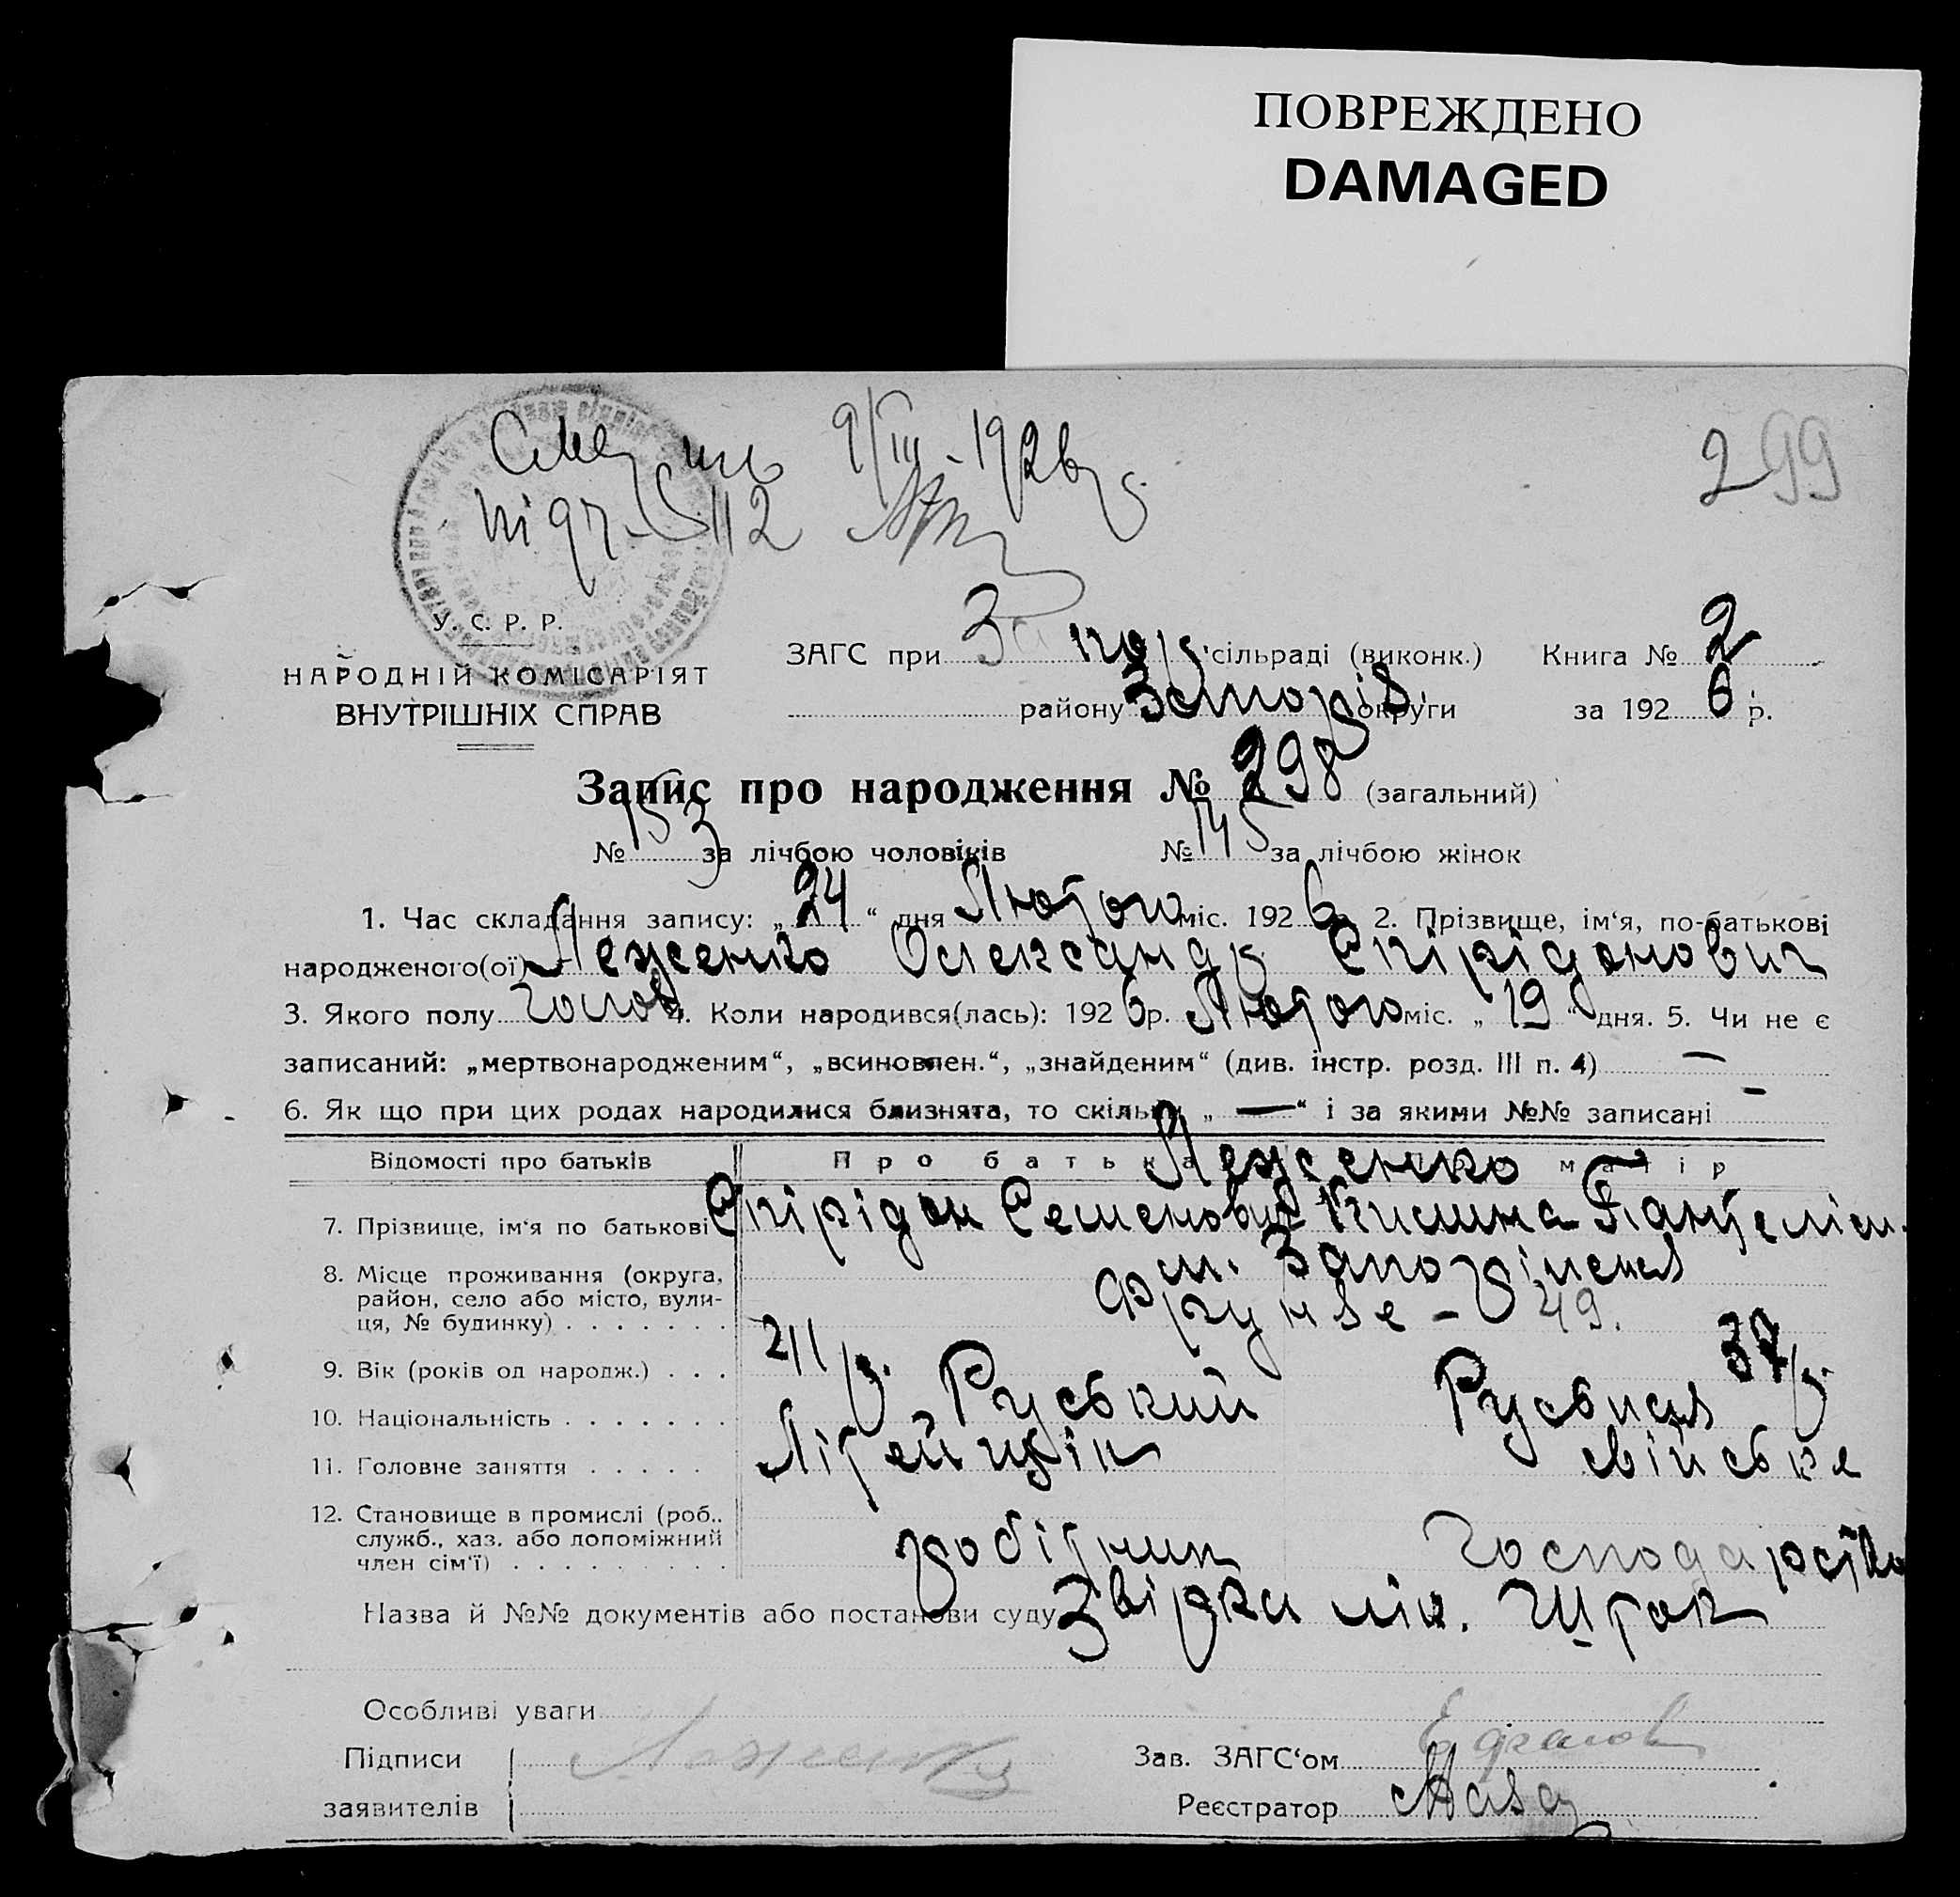 ПОВРЕЖДЕНО
DAMAGED
9/III-1926 р.
299
112
У. С. Р. Р.
НАРОДНІЙ КОМІСАРІЯТ
ВНУТРІШНІХ СПРАВ
ЗАГС при Запор. сільраді (виконк.) Книга № 2
району Запоріз. округи за 1926 р.
Запис про народження № 298 (загальний)
№ 153 за лічбою чоловіків № 145 за лічбою жінок
1. Час складання запису: „24“ дня Лютого міс. 1926 2. Прізвище, ім‘я, по-батькові
народженого(ої) Леженко Олександр Спірідонович
3. Якого полу Чолов 4. Коли народився(лась): 1926 р. Лютого міс. „19“ дня. 5. Чи не є
записаний: „мертвонародженим“, „всиновлен.“, „знайденим“ (див. інстр. розд. III п. 4) —
6. Як що при цих родах народилися близнята, то скільки „—“ і за якими №№ записані —
Відомості про батьків Про батька Леженко матір
7. Прізвище, ім‘я по батькові Спірідон Семенович Килина Пантелім.
8. Місце проживання (округа, район, село або місто, вулиця, № будинку) м. Запоріжжя
Фрунзе - 49.
9. Вік (років од народж.) 37 р.
10. Національність Руський Руськая
11. Головне заняття Літейщік свійське
12. Становище в промислі (роб.. служб., хаз. або допоміжний член сім‘ї) робітник господарство
Назва й №№ документів або постанови суду Звірка лік. Шток
Особливі уваги
Підписи Леженко Зав. ЗАГС‘ом
заявителів Реєстратор